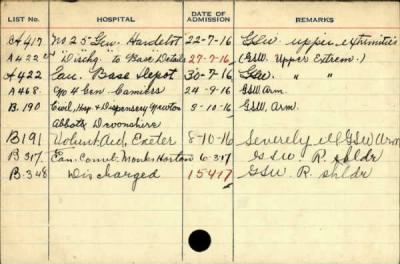 LIST No. HOSPITAL DATE OF ADMISSION REMARKS
A417 No 25 Gen. Hardelot 22-7-16 GSW upper extremities
A422 "Dischg. to Base" Details 27-7-16 (GSW. Upper Extrem.)
A422 Can. Base Depot 30-7-16 GSW. " "
A468 No 4 Gen Camiers 24-9-16 GSW Arm
B.190 Civil, Hosp & Dispensary Newton 3-10-16 GSW, Arm.
Abbot, Devonshire
B191 Volunt Aid, Exeter 8-10-16 Severely ill GSW Arm
B.317. Can. Conval. Monks Horton 6-3-17 GSW R. shldr
B.348 Discharged 15 4 17 GSW. R. shldr